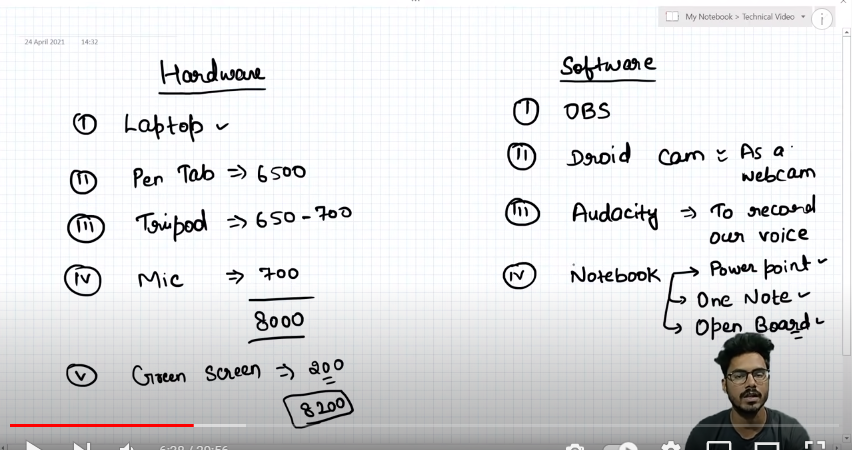 My Notebook > Technical Video
24 April 2021 14:32
Hardware
I Laptop ✓
II Pen Tab ⇒ 6500
III Tripod ⇒ 650 - 700
IV Mic ⇒ 700
8000
V Green Screen ⇒ 200
8200
Software
I OBS
II Droid Cam = As a
webcam
III Audacity ⇒ To record
our voice
IV Notebook → Power point ✓
→ One Note ✓
→ Open Board ✓